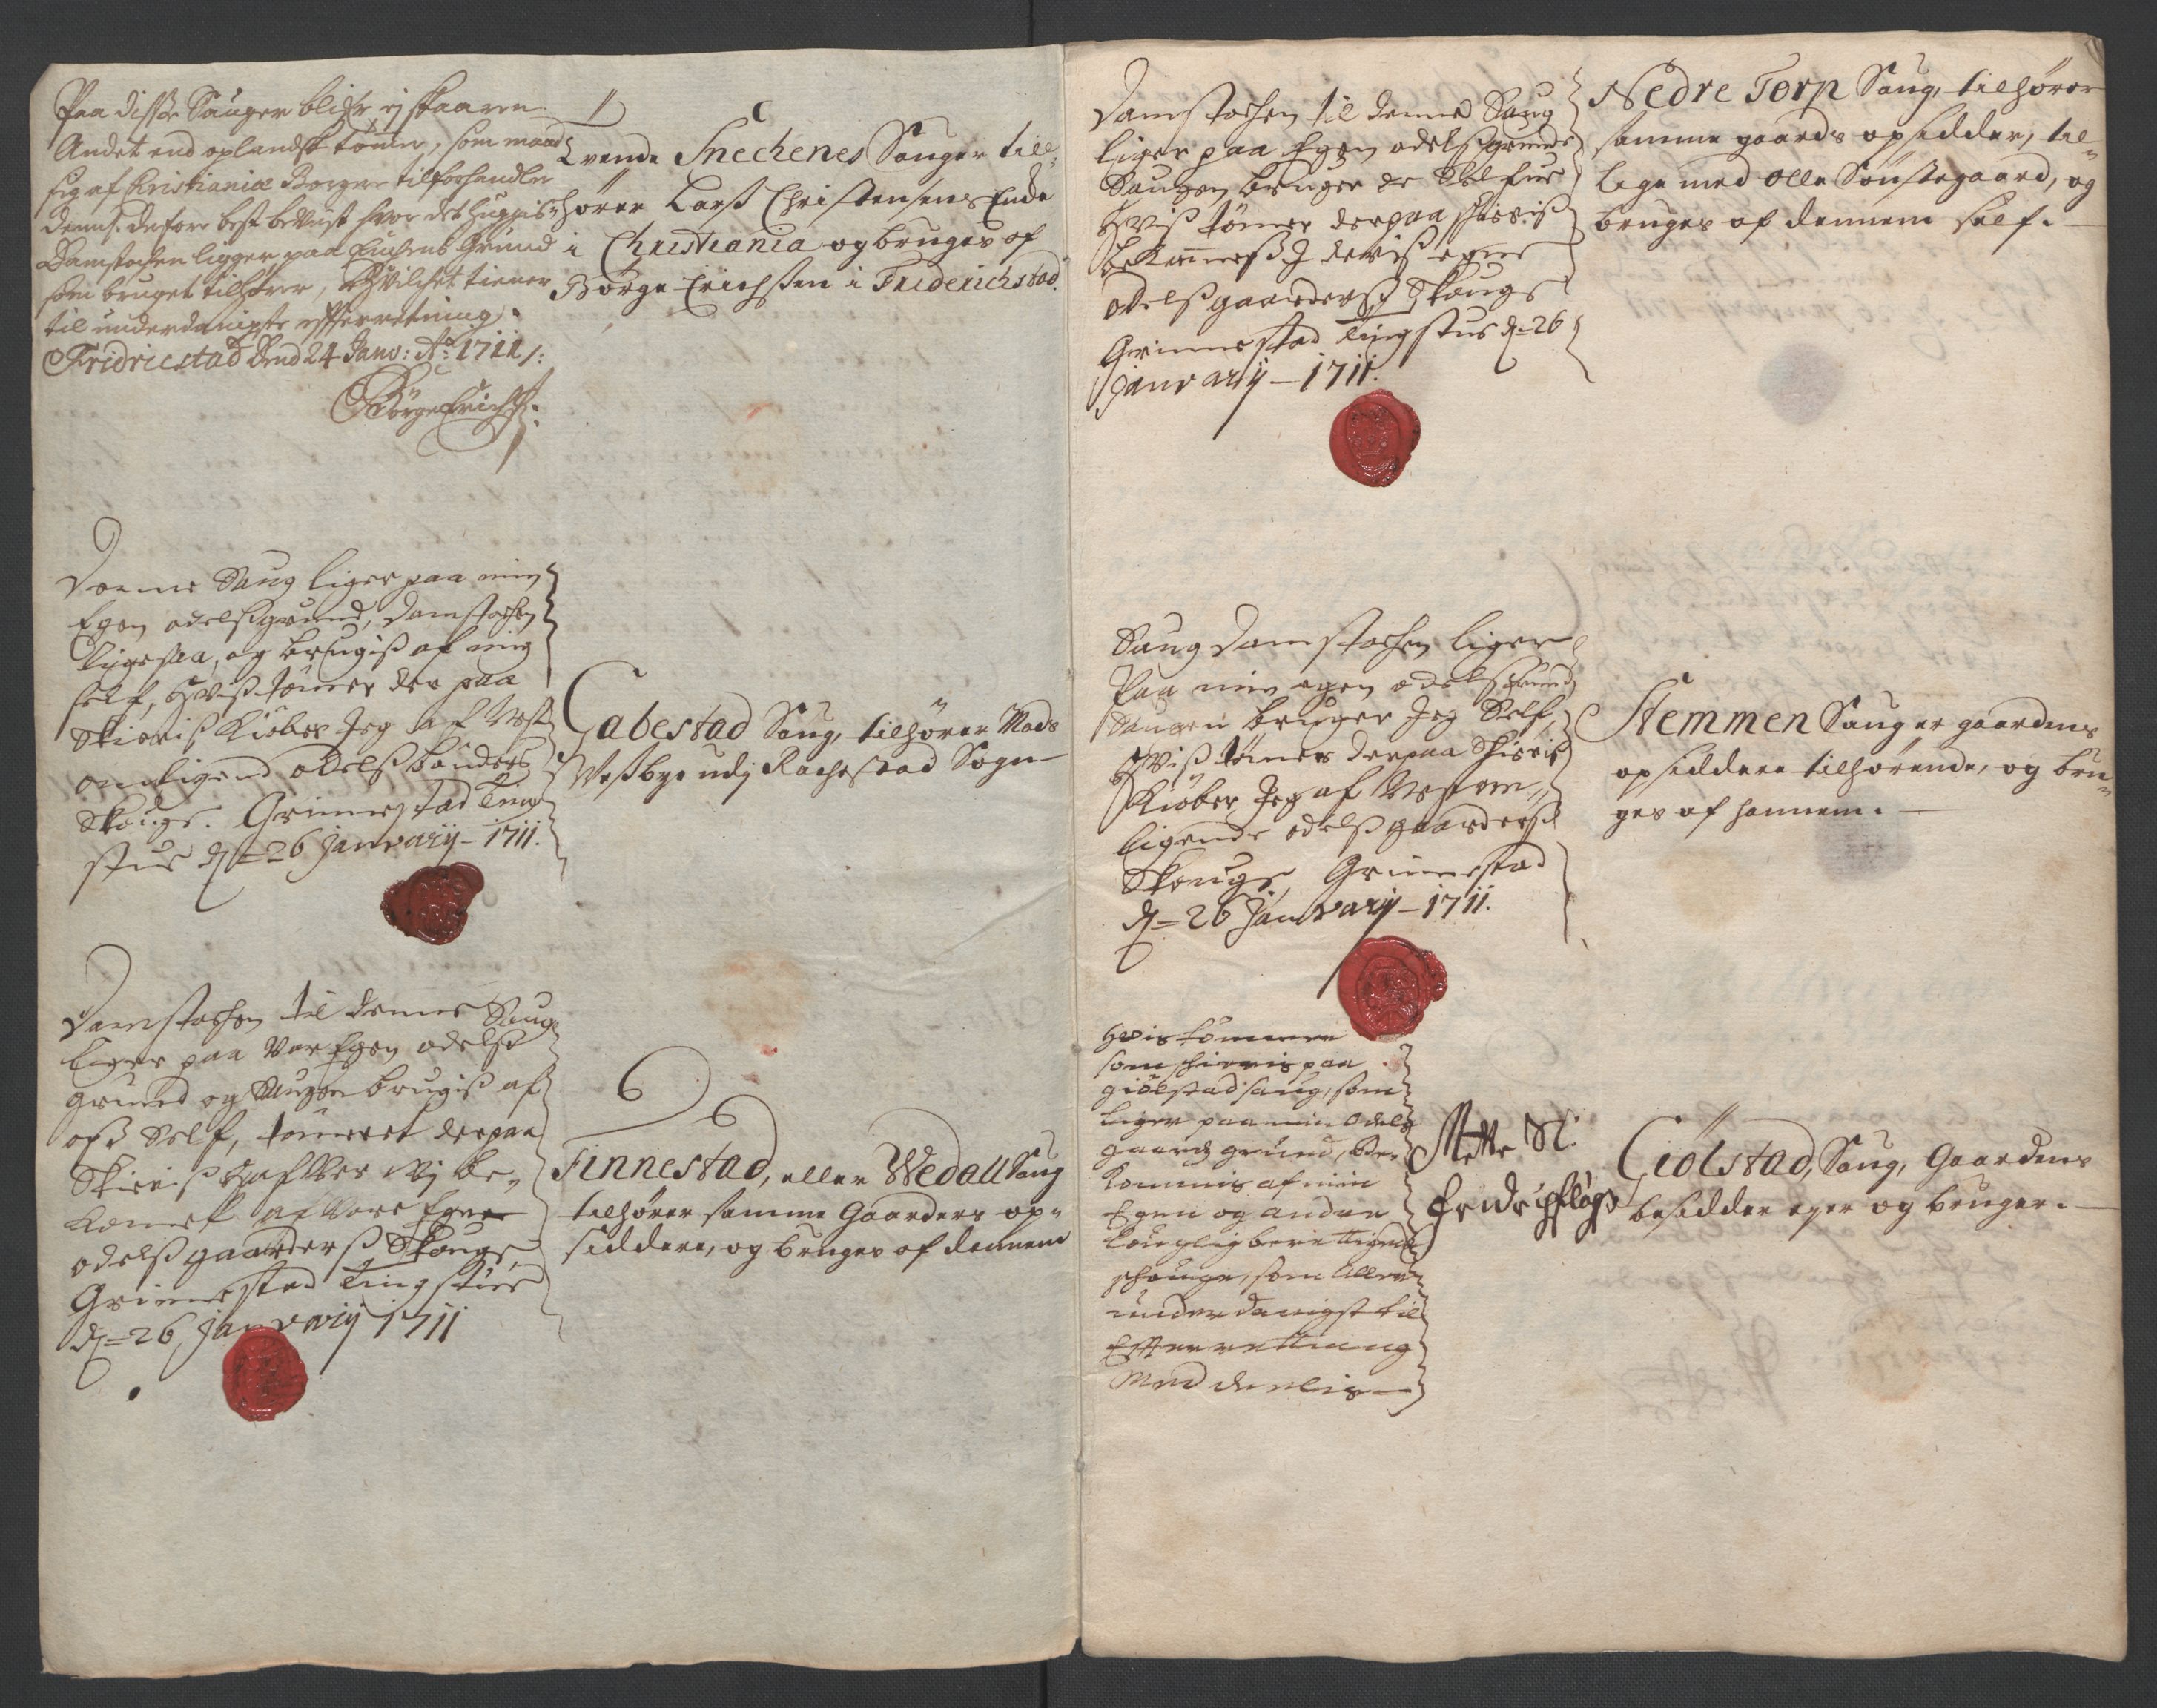 Paa disse Sauger blifr ej skaaren
Andet end oplandsk tømer, som mand
sig af Christianiæ Borgere tilforhandler
denns. derfore best bevust hvor det huggis,
Damstochen ligger paa Enchens Grund
som bruget tilhører, Hvilchet tiener
til underdanigste efterretning.
Fridricstad Dend 24 Janv: Ao 1711/:
Børge Erichss.
Tvende Snechenes Sauger till„
hører Larss Christensens Enche
i Christiania og bruges af
Børge Erichssen i Friderichstad.
Denne Saug liger paa min
Egen odelss grund, Damstochen
liigesaa, og brugiss af mig
self, Hviss tømer der paa
Skieriss Kiøber Jeg af Vest
omligend odelss bønders
Skouge. Grimestad Ting
stue d=26 Janvarij-1711.
Cabestad Saug, tilhører Mads
Wessbye udj Rachestad Sogn-
Damstochen til denne Saug
liger paa Vor Egen odelss
grund og Saugen brugiss af
oss Self, tømeret derpaa
Skieriss Haffver Vij be„
komet af Vore Egne
odelss gaarderss Skouge,
Grimestad Tingstue
d=26 Janvarij 1711
Finnestad, eller Wedall Saug
tilhører samme Gaarders op„
siddere, og bruges af dennem
Damstochen til denne Saug
liger paa Egen odelss grund
Saugen bruger de Self
Hviss tømer derpaa skieriss
bekommess J deriss egne
odelss gaarderss Skouge
Grimestad Tingstue d=26
Janvarij-1711.
Nedre Torp Saug, tilhører
samme gaards opsidder, til„
lige med Olle Sønstegaard, og
bruges af dennem self.
Saug Damstochen liger
Paa min egen odelss grund
Saugen bruger Jeg Self
Hviss tømer derpaa Skieriss
Kiøber Jeg af Vestom„
ligende odelss gaarderss
Skouge, Grimestad
d=26 Janvarij-1711.
Stemmen Saug er gaardens
opsiddere tilhørende, og bru„
ges af hannem.
Hvis tømmer
som schieris paa
giølstad saug, som
liger paa min Odels
gaards grund, Be
kommis af min
Egen og andre
schouge, som Aller
underdanigst til
Efterretning
Med deelis
Mette Sl.
Ciølstad, Saug, Gaardens
besidder eyer og bruger.